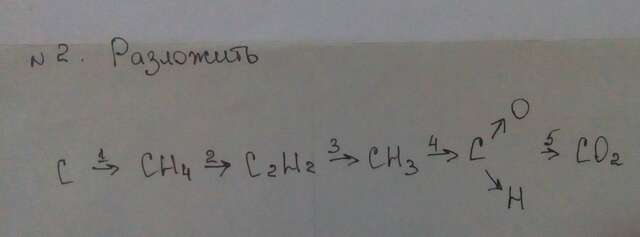 №2. Разложить
C 1→ CH4 2→ C2H2 3→ CH3 4→ C ↗O ↘H 5→ CO2